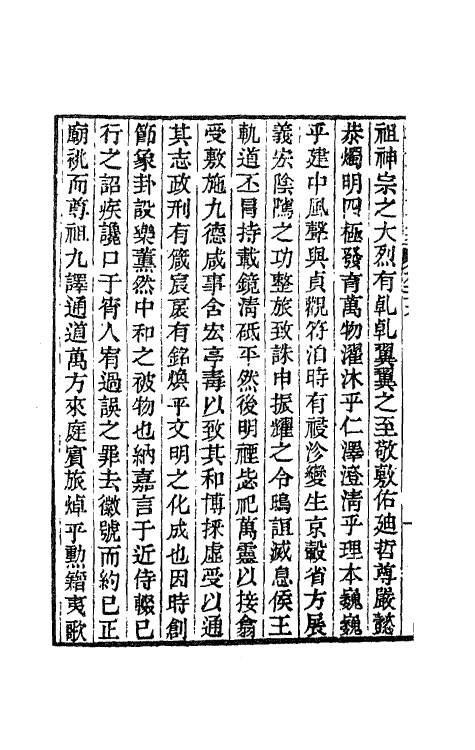 祖神宗之大烈有乹乹翼翼之至敬敷佑廸哲尊嚴懿
恭燭明四極發育萬物濯沐乎仁澤澄清乎理本巍巍
乎建中風聲與貞觀符洎時有祲沴變生京轂省方展
義宏陰隲之功整旅致誅申振耀之令鴟誼滅息侯王
軌道丕冒持載鏡清砥平然後明禋毖祀萬靈以接翕
受敷施九德咸事含宏亭毒以致其和博採虛受以通
其志政刑有箴扆扆有銘煥乎文明之化成也因時創
節象卦設樂薰然中和之被物也納嘉言于近侍輟已
行之詔疾讒口于宵人宥過誤之罪去徽號而約已正
廟祧而尊祖九譯通道萬方來庭賓旅焯乎勲籍夷歌